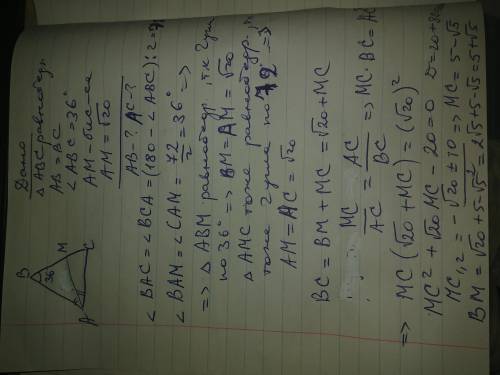 Дано
△ ABC равнобедр.
AB = BC
∠ ABC = 36°
AM - бис-са
AM = √20
AB - ? AC - ?
B
36
M
A
C
∠ BAC = ∠ BCA = (180 - ∠ ABC) : 2 =
∠ BAM = ∠ CAM = 72/2 = 36° =>
=> △ ABM равнобедр., т.к 2 угла
по 36° => BM = AM = √20
△ AMC тоже равнобедр.,
тоже 2 угла по 72 =>
AM = AC = √20
BC = BM + MC = √20 + MC
MC/AC = AC/BC => MC · BC = AC
=> MC (√20 + MC) = (√20)²
MC² + √20 MC - 20 = 0 D = 20 + 80
MC₁,₂ = (-√20 ± 10)/2 => MC = 5 - √5
BM = √20 + 5 - √5 = 2√5 + 5 - √5 = 5 + √5